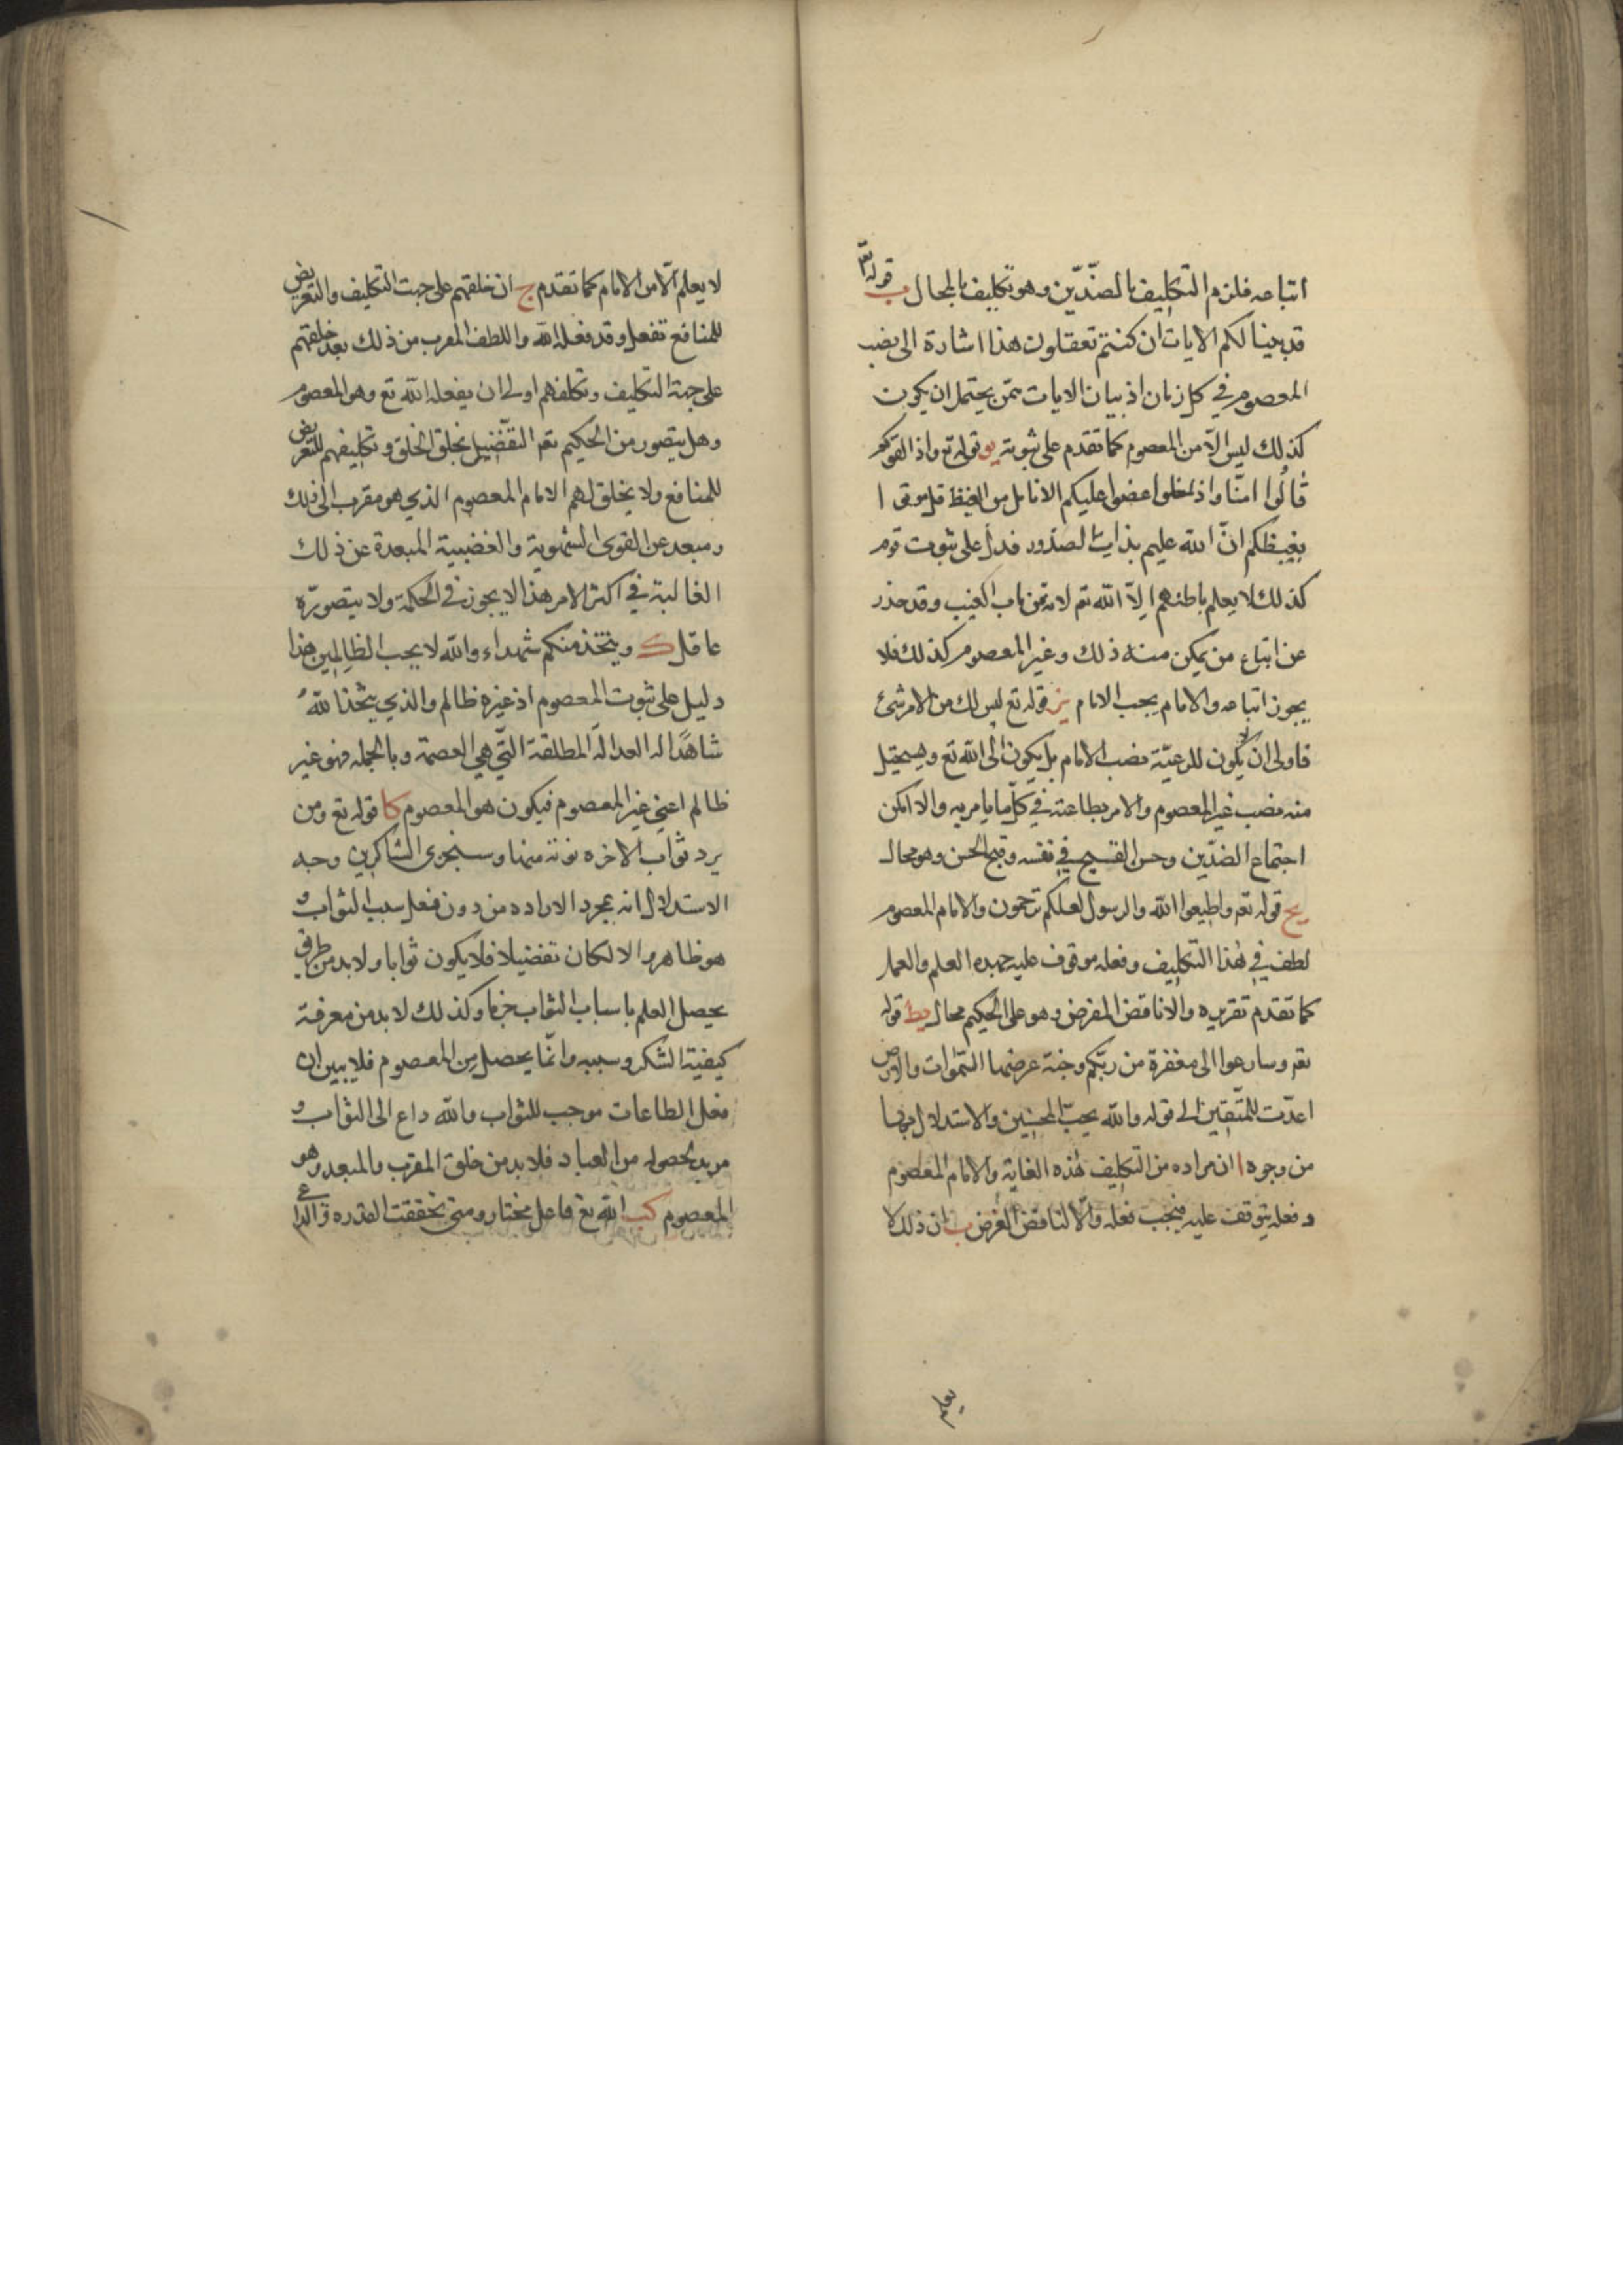 اتباعه فلزم التكليف بالضدّين وهو تكليف بالمحال ب قوله تع
قد بينا لكم الايات ان كنتم تعقلون هذا اشارة الى نصب
المعصوم في كل زمان اذ بيان الايات ممّن يحتمل ان يكون
كذلك ليس الّا من المعصوم كما تقدم على ثبوته يو قوله تع واذ القوكم
قالُوا امنّا واذ اخلوا عضوا عليكم الانامل من الغيظ قل موتوا
بغيظكم انّ الله عليم بذات الصدور فدل على ثبوت قوم
كذلك لا يعلم باطنهم الّا الله تم لانه من باب الغيب وقد حذر
عن اتباع من يمكن منه ذلك وغير المعصوم كذلك فلا
يجوز اتباعه والامام يجب الامام يز قوله تع ليس لك من الامر شئ
فاولى ان لا يكون للرعيّة نصب الامام بل يكون الى الله تع ويستحيل
منه نصب غير المعصوم والامر بطاعته في كلّ ما يامر به والا امكن
اجتماع الضدّين وحسن القبيح في نفسه وقبح الحسن وهو محال
يح قوله تم واطيعوا الله والرسول لعلكم ترحمون والامام المعصوم
لطف في هذا التكليف وفعله موقوف عليه جهده العلم والعمل
كما تقدم تقريره والا ناقض الغرض وهو على الحكيم محال يط قوله
تم وسارعوا الى مغفرة من ربّكم وجنة عرضها السّموات والارض
اعدّت للمتّقين الى قوله والله يحبّ المحسنين والاستدلال بها
من وجوه ا ان مراده من التكليف هذه الغاية والامام المعصوم
وفعله يتوقف عليه فيجب فعله والّا لناقض الغرض ب ان ذلك لا
يعلم
لا يعلم الّا من الامام كما تقدم ج ان خلقهم على جهت التكليف والتعريض
للمنافع تفعل وقد فعله الله واللطف المقرب من ذلك بعد خلقهم
على جهة التكليف وتكلفهم اولى ان يفعله الله تع وهو المعصوم
وهل يتصور من الحكيم تم التفضيل بخلق الخلق وتكليفهم للتعريض
للمنافع ولا يخلق لهم الامام المعصوم الذي هو مقرب الى ذلك
ومبعد عن القوى الشهوية والغضبية المبعدة عن ذلك
الغالبة في اكثر الامر هذا لا يجوز في الحكمة ولا يتصوّره
عاقل ك ويتخذ منكم شهداء والله لا يحب الظالمين هذا
دليل على ثبوت المعصوم اذ غيره ظالم والذي يتّخذ اللهُ
شاهدًا له العدالة المطلقة التّي هي العصمة وبالجمله فهو غير
ظالم اعني غير المعصوم فيكون هو المعصوم كا قوله تع ومن
يرد ثواب الاخره نوته منها وسنجزى الشاكرين وجه
الاستدلال انه بمجرد الاراده من دون فعل سبب الثواب و
هو ظاهر والا لكان تفضيلا فلا يكون ثوابا ولا بد من طريق
يحصل العلم باسباب الثواب جزما وكذلك لا بد من معرفة
كيفية الشكر وسببه وانّما يحصل من المعصوم فلا يبين ان
فعل الطاعات موجب للثواب والله داع الى الثواب و
مريد لحصوله من العباد فلا بد من خلق المقرب والمبعد وهو
المعصوم كب الله تع فاعل مختار ومتى تحققت القدره والداعي